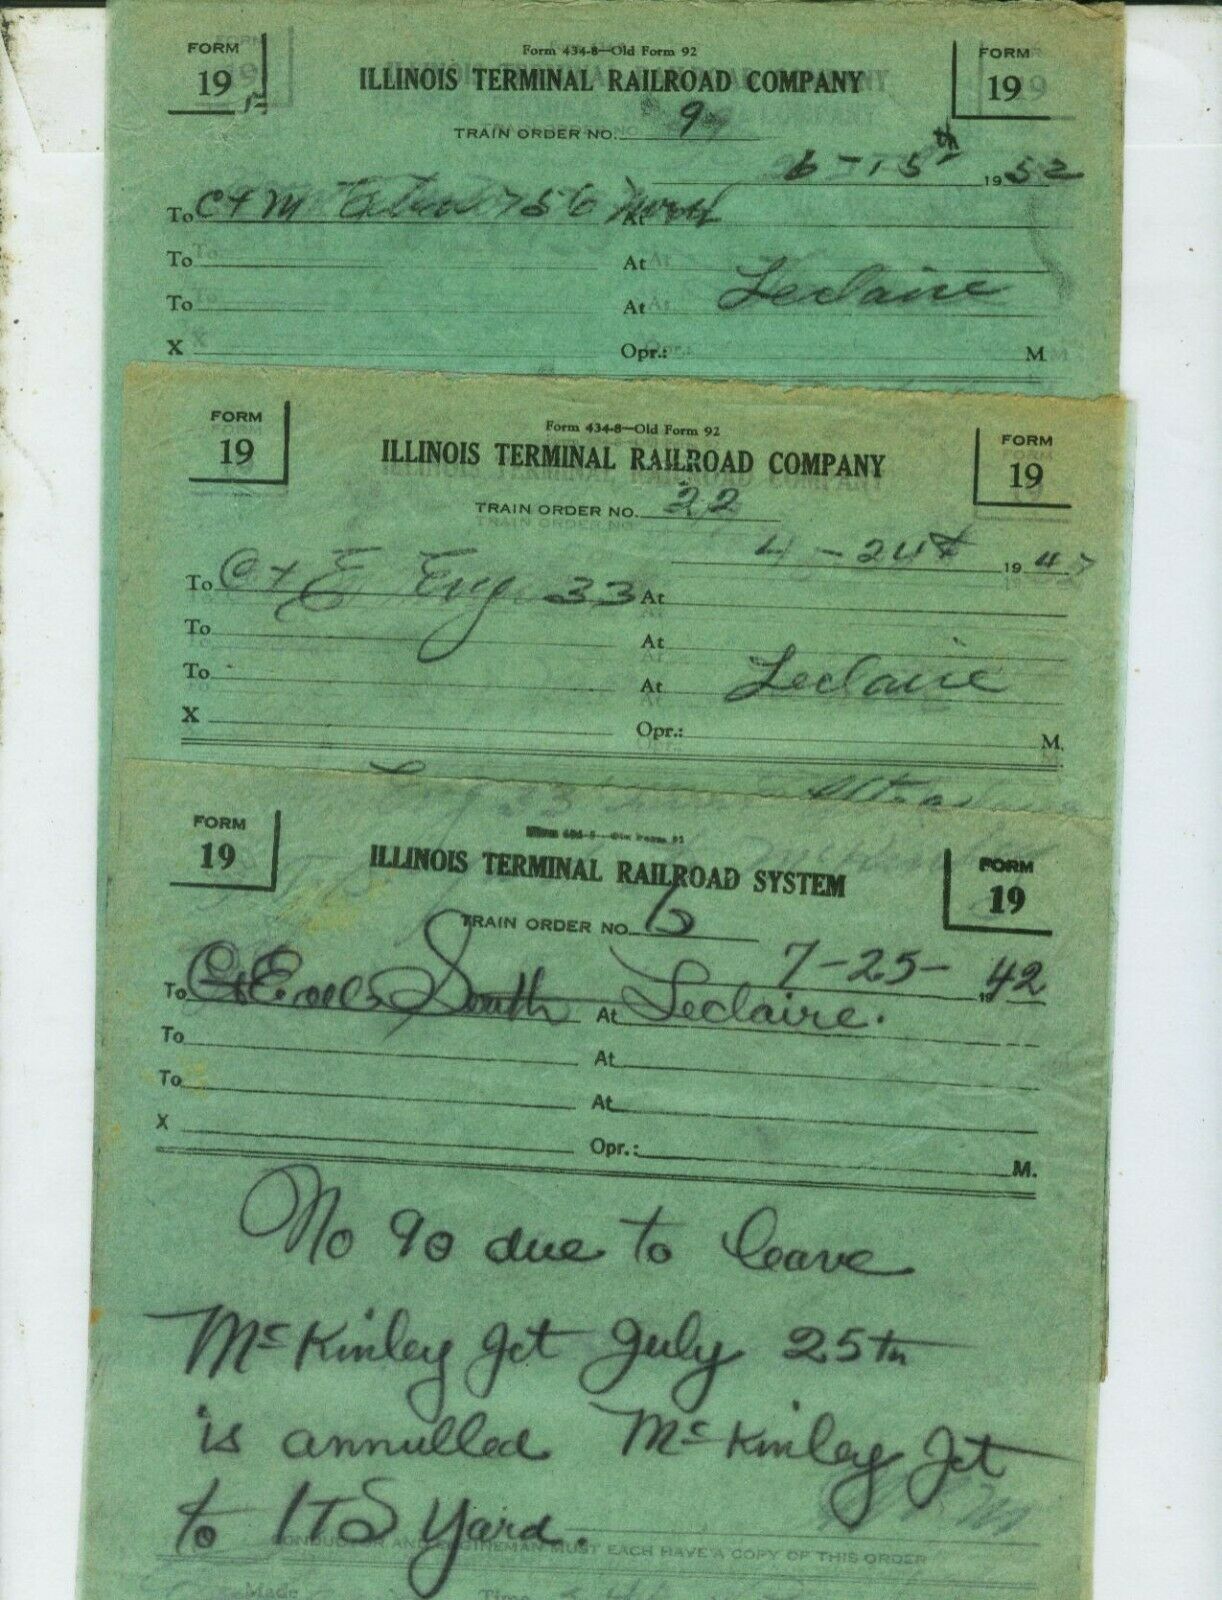 FORM 19
Form 434-8—Old Form 92
FORM 19
ILLINOIS TERMINAL RAILROAD COMPANY
TRAIN ORDER NO. 9
6-15th 1952
To C+M Extra 756 North At
To At
To At Leclaire
X Opr.: M
FORM 19
Form 434-8—Old Form 92
FORM 19
ILLINOIS TERMINAL RAILROAD COMPANY
TRAIN ORDER NO. 22
4-24th 1947
To C+E Eng 33 At
To At
To At Leclaire
X Opr.: M.
Eng 33
McKinley
FORM 19
FORM 19
ILLINOIS TERMINAL RAILROAD SYSTEM
TRAIN ORDER NO. 6
7-25-1942
To C+E South At Leclaire.
To At
To At
X Opr.: M.
No 90 due to leave
McKinley Jct July 25th
is annulled McKinley Jct
to ITS Yard.
CONDUCTOR AND ENGINEMAN MUST EACH HAVE A COPY OF THIS ORDER
Made Time